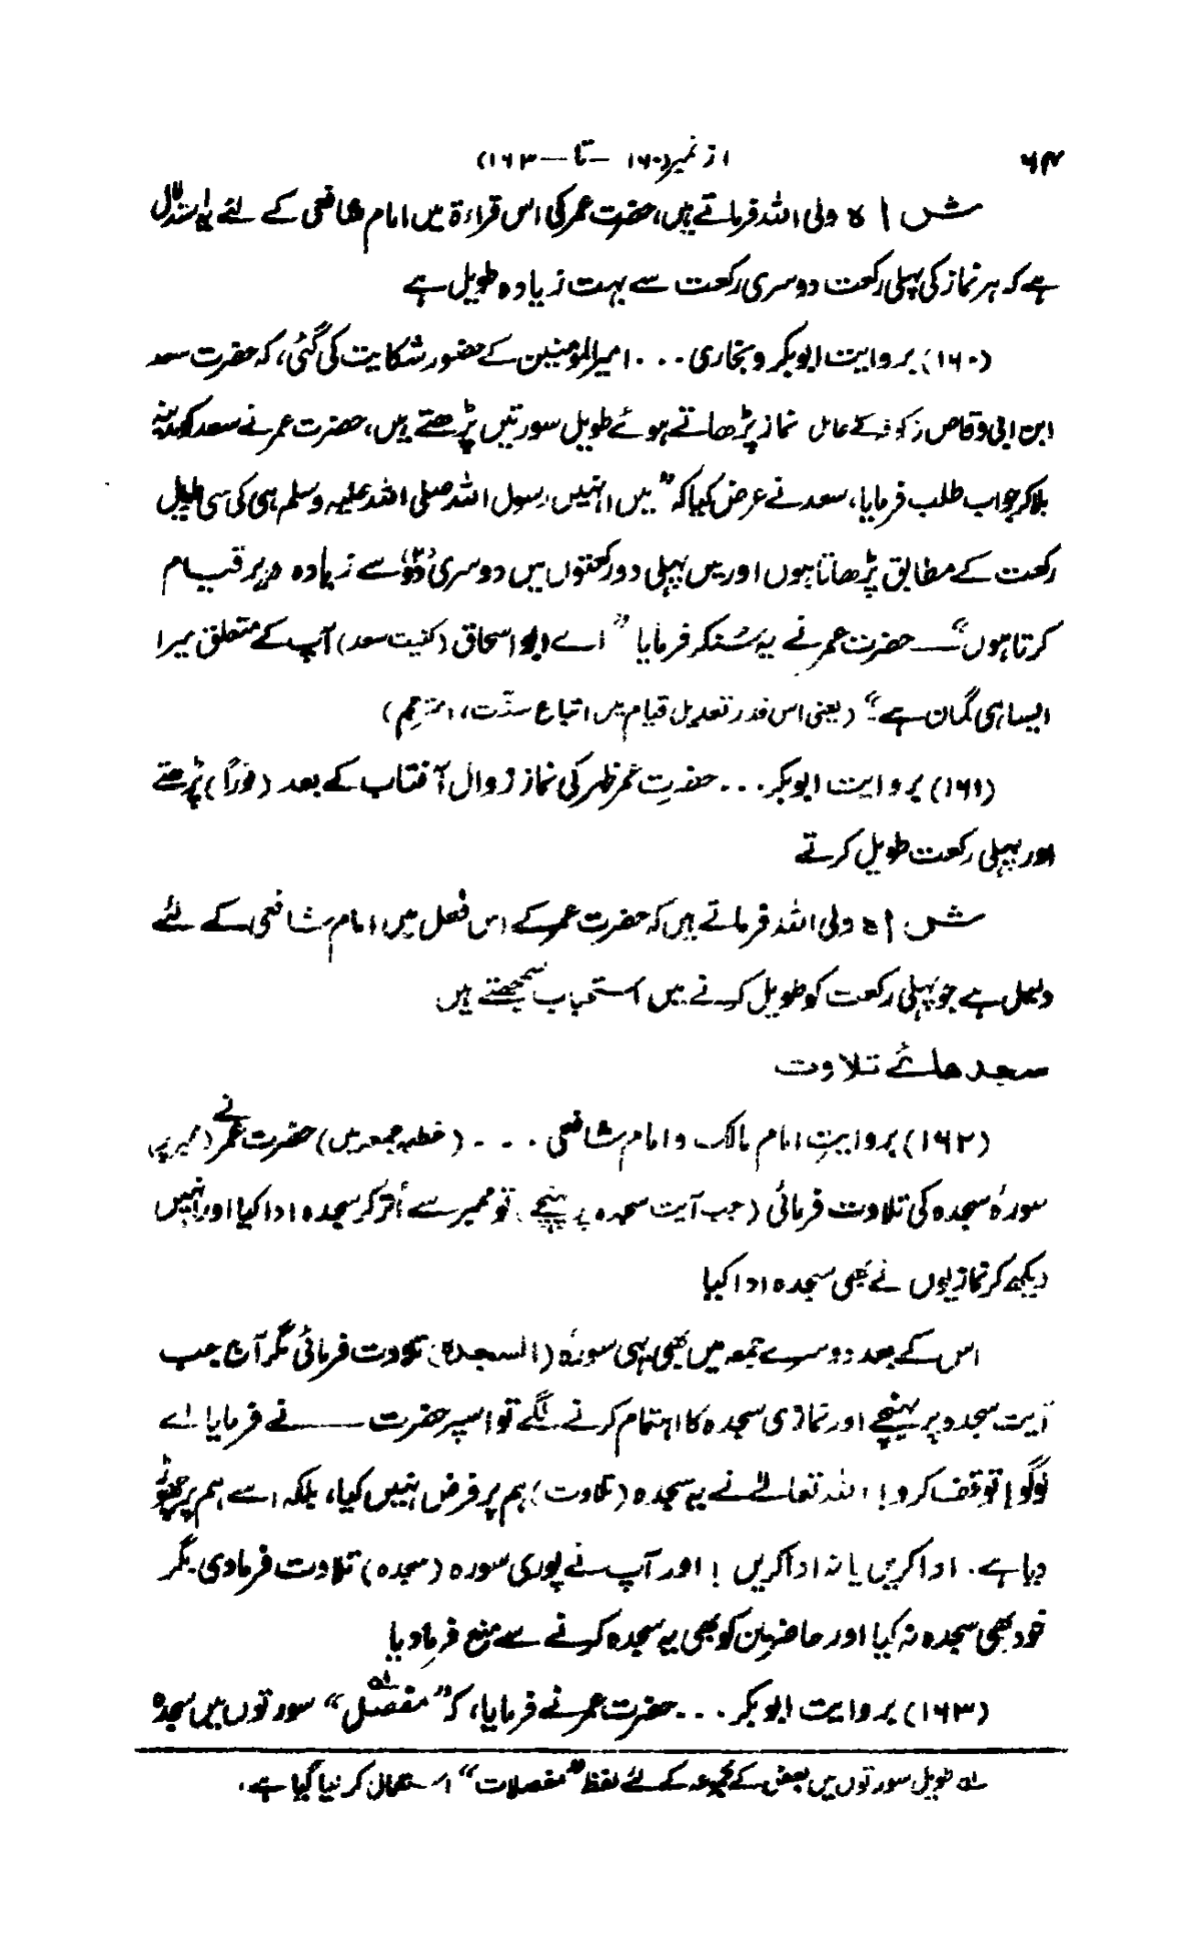 ۶۴ از نمبر(۱۶۰ — تا — ۱۶۳)
شاہ ولی اللہ فرماتے ہیں، حضرت عمر کی اس قراءۃ میں امام شافعی کے لئے یہ استدلال
ہے کہ ہر نماز کی پہلی رکعت دوسری رکعت سے بہت زیادہ طویل ہے
(۱۶۰) بروایت ابوبکر و بخاری ... امیرالمؤمنین کے حضور شکایت کی گئی، کہ حضرت سعد
ابن ابی وقاص (کوفہ کے عامل نماز پڑھاتے ہوئے طویل سورتیں پڑھتے ہیں، حضرت عمر نے سعد کو مدینہ
بلا کر جواب طلب فرمایا، سعد نے عرض کیا کہ "میں انہیں رسول اللہ صلی اللہ علیہ وسلم ہی کی سی طویل
رکعت کے مطابق پڑھاتا ہوں اور میں پہلی دو رکعتوں میں دوسری دو۲ سے زیادہ دیر قیام
کرتا ہوں" — حضرت عمر نے یہ سُنکر فرمایا "اے ابو اسحاق (کنیت سعد) آپ کے متعلق میرا
ایسا ہی گمان ہے" (یعنی اس قدر تعدیل قیام میں اتباع سنّت، مترجم)
(۱۶۱) بروایت ابوبکر... حضرتِ عمر ظہر کی نماز زوال آفتاب کے بعد (فوراً) پڑھتے
اور پہلی رکعت طویل کرتے
شاہ ولی اللہ فرماتے ہیں کہ حضرتِ عمر کے اس فعل میں امام شافعی کے لئے
دلیل ہے جو پہلی رکعت کو طویل کرنے میں استحباب سمجھتے ہیں
سجدہائے تلاوت
(۱۶۲) بروایتِ امام مالک و امام شافعی ... (خطبہ جمعہ میں) حضرت عمر نے (ممبر پر)
سورۂ سجدہ کی تلاوت فرمائی (جب آیت سجدہ پر پہنچے، تو ممبر سے اُتر کر سجدہ ادا کیا اور انہیں
دیکھ کر نمازیوں نے بھی سجدہ ادا کیا
اس کے بعد دوسرے جمعہ میں بھی یہی سورۃ (السجدۃ) تلاوت فرمائی مگر آج جب
آیت سجدہ پر پہنچے اور نمازی سجدہ کا اہتمام کرنے لگے تو اسپر حضرت —— نے فرمایا اے
لوگو! توقف کرو! اللہ تعالےٰ نے یہ سجدہ (تلاوت) ہم پر فرض نہیں کیا، بلکہ اسے ہم پر چھوڑ
دیا ہے. ادا کریں یا نہ ادا کریں! اور آپ نے پوری سورہ (سجدہ) تلاوت فرمادی. مگر
خود بھی سجدہ نہ کیا اور حاضرین کو بھی یہ سجدہ کرنے سے منع فرمادیا
(۱۶۳) بروایت ابوبکر ... حضرت عمر نے فرمایا، کہ "مفصّل لہ" سورتوں میں سجدہ
لہ طویل سورتوں میں بعض کے مجموعہ کے لئے لفظ "مفصلات" استعمال کر لیا گیا ہے،